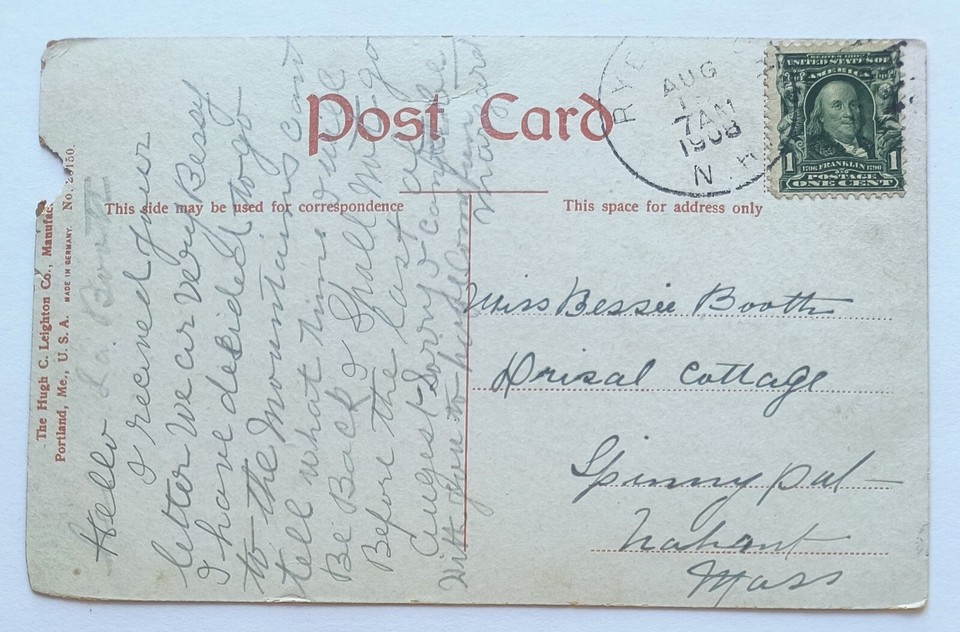 Post Card
This side may be used for correspondence
This space for address only
The Hugh C. Leighton Co., Manufac
Portland, Me., U. S. A. MADE IN GERMANY. No. 29150.
RYE
AUG
7 AM
1908
N. H
SERIES 1902
UNITED STATES OF
AMERICA
1706 FRANKLIN 1790
1 POSTAGE 1
ONE CENT
Miss Bessie Booth
Cottage
Nahant
Mass
Hello
I received your
letter We ar very Bessy
I have decided to go
to the Mountains cant
tell what time I will
Be Back I Shall Not go
Before the last of
August Sorry I cant be
With you to